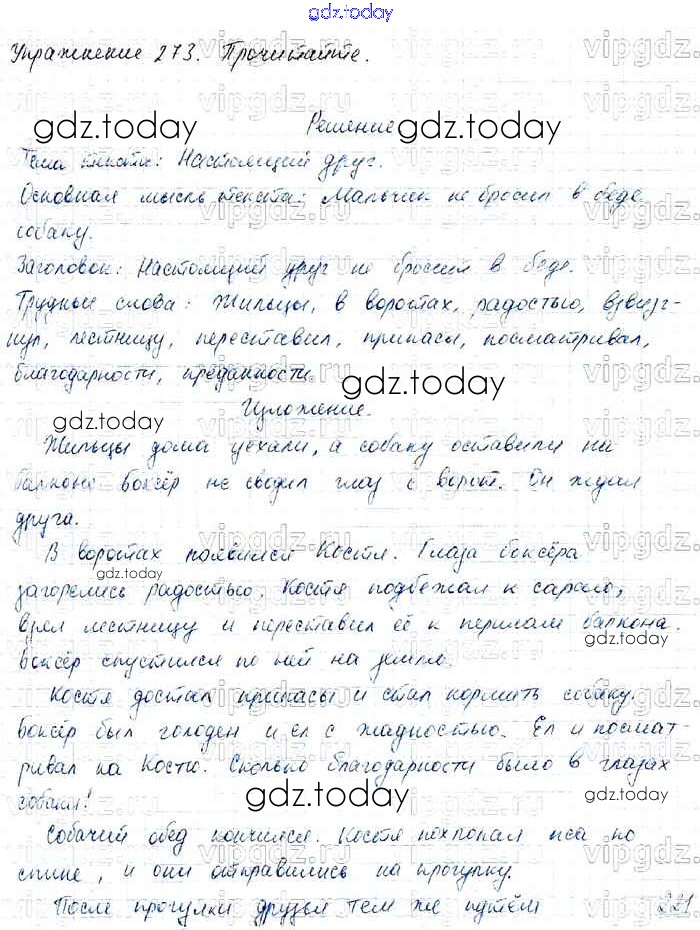 gdz.today
Упражнение 273. Прочитайте.
Решение
gdz.today
gdz.today
Тема текста: Настоящий друг.
Основная мысль текста: Мальчик не бросил в беде
собаку.
Заголовок: Настоящий друг не бросит в беде.
Трудные слова: Жильцы, в воротах, радостью, взвизг-
нул, лестницу, переставил, припасы, посматривал,
благодарности, преданности.
gdz.today
gdz.today
Изложение.
Жильцы дома уехали, а собаку оставили на
балконе боксёр не сводил глаз с ворот. Он ждал
друга.
В воротах появился Костя. Глаза боксёра
gdz.today
загорелись радостью. Костя подбежал к сараю,
взял лестницу и переставил её к перилам балкона.
gdz.today
Боксёр спустился по ней на землю.
Костя достал припасы и стал кормить собаку.
Боксёр был голоден и ел с жадностью. Ел и посмат-
ривал на Костю. Сколько благодарности было в глазах
собаки!
gdz.today
gdz.today
Собачий обед кончился. Костя похлопал пса по
спине, и они отправились на прогулку.
После прогулки друзья тем же путём
221